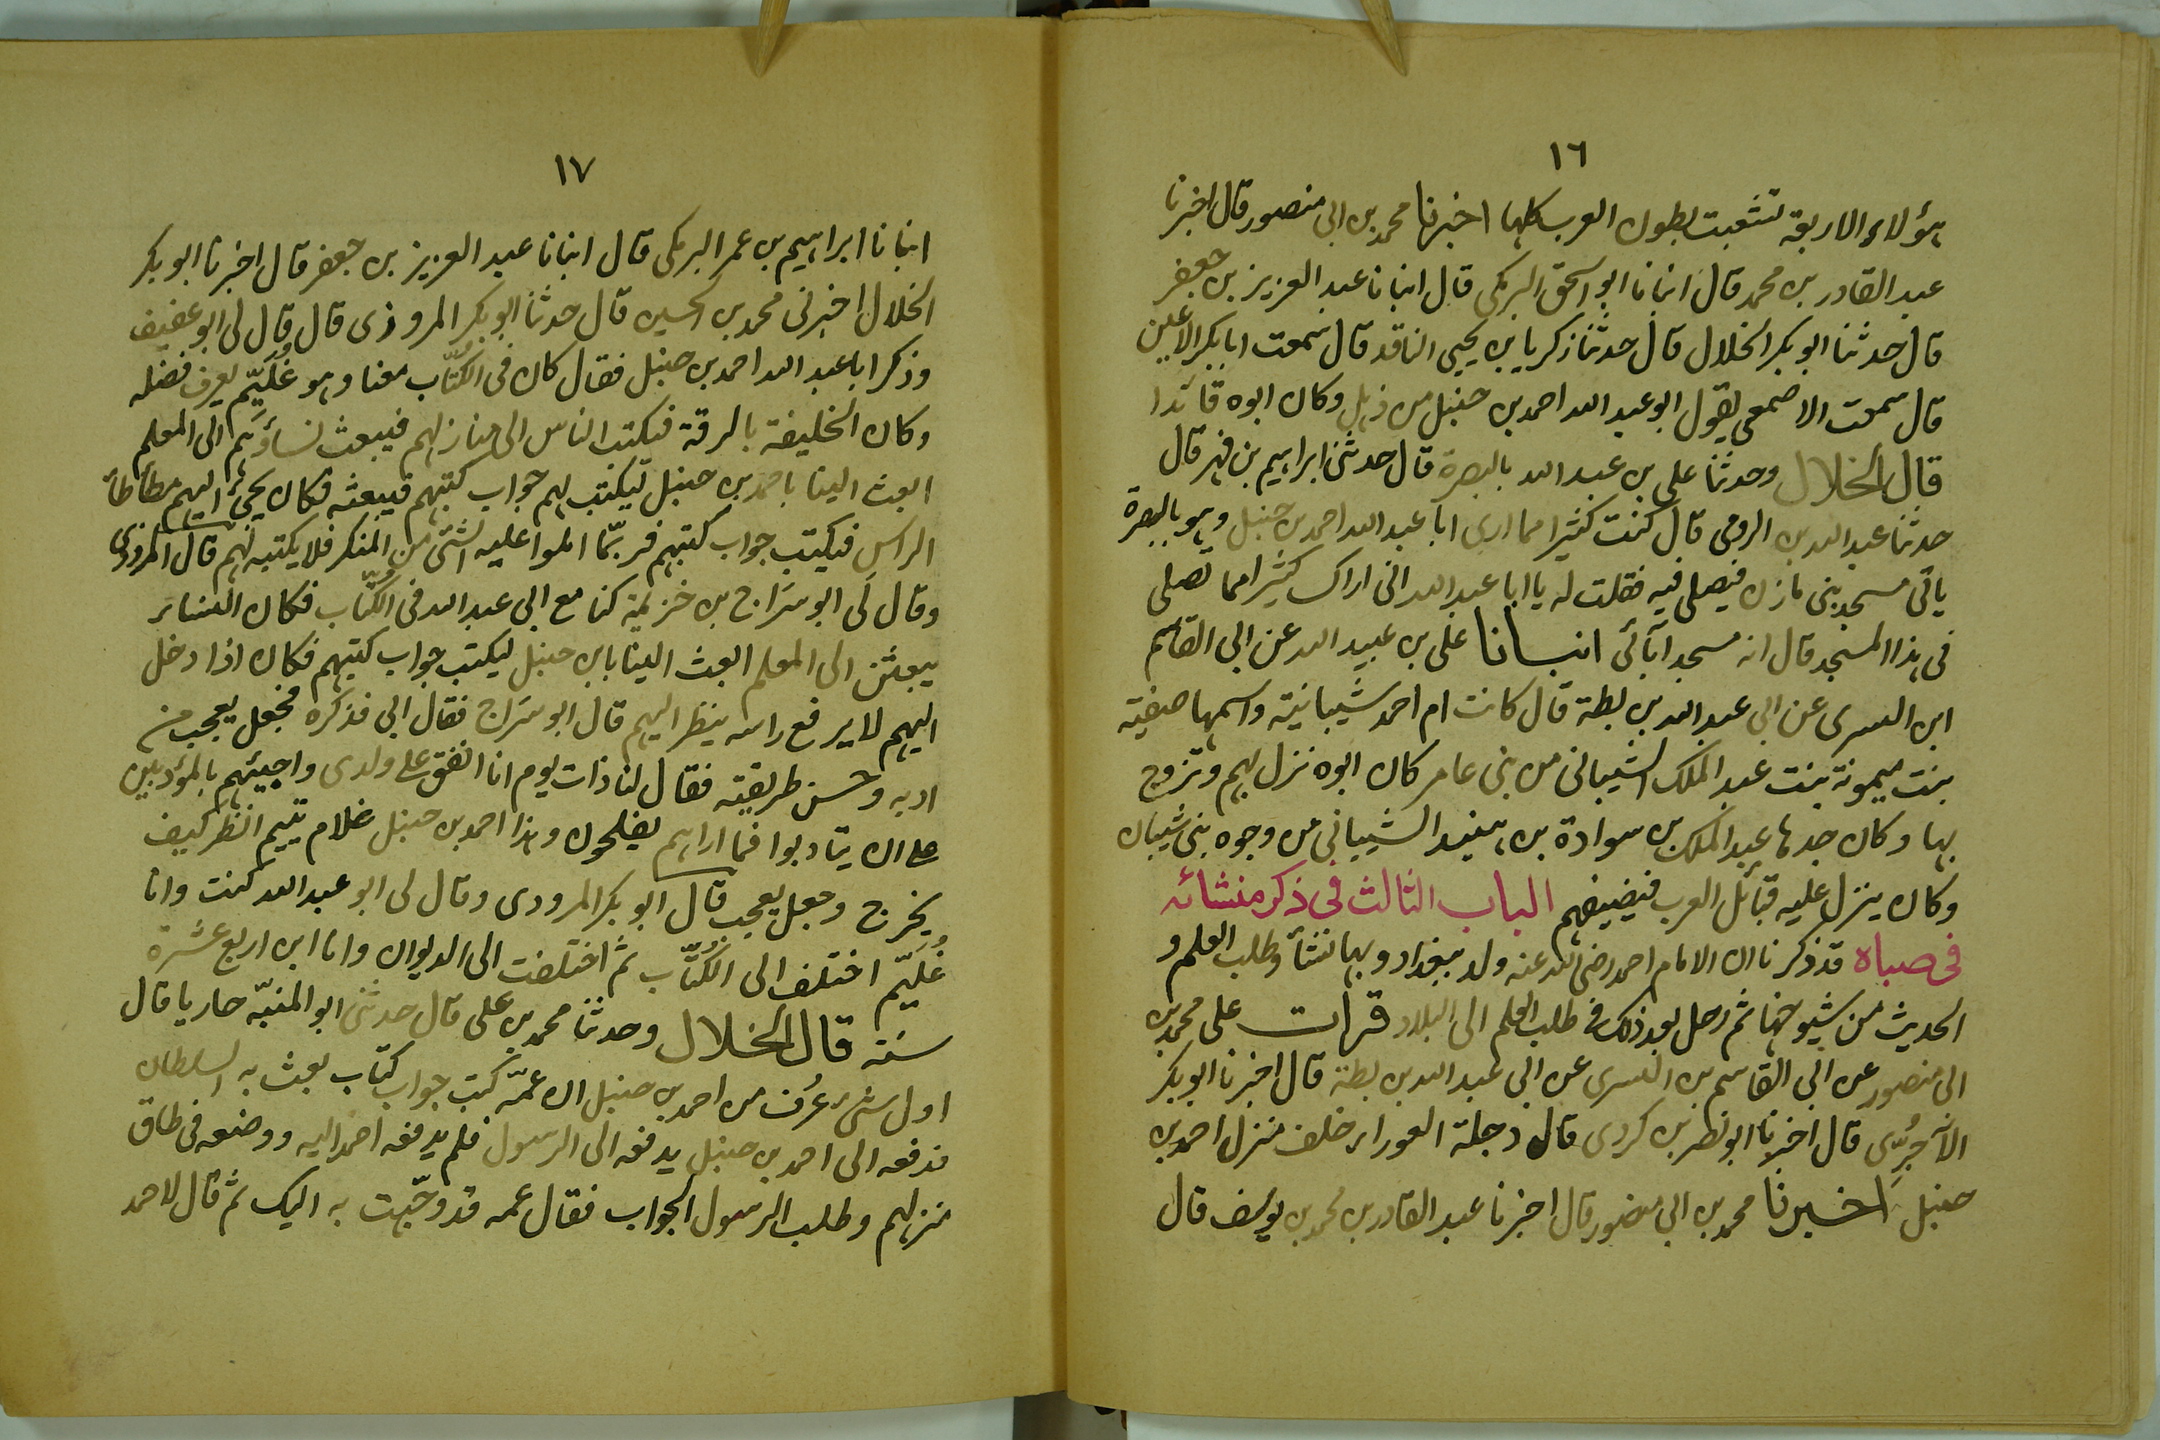 ١٦
هؤلاء الاربعة تشعبت بطون العرب كلها اخبرنا محمد بن ابى منصور قال اخبرنا
عبد القادر بن محمد قال انبانا ابو اسحق البرمكى قال انبانا عبد العزيز بن جعفر
قال حدثنا ابو بكر الخلال قال حدثنا زكريا بن يحيى الناقد قال سمعت ابا بكر الاعين
قال سمعت الاصمعى يقول ابو عبد الله احمد بن حنبل من ذهل وكان ابوه قائدا
قال الخلال وحدثنا على بن عبد الله بالبصرة قال حدثنى ابراهيم بن فهر قال
حدثنا عبد الله بن الرومى قال كنت كثيرا مما ارى ابا عبد الله احمد بن حنبل وهو بالبصرة
ياتى مسجد بنى مازن فيصلى فيه فقلت له يا ابا عبد الله انى اراك كثيرا مما تصلى
فى هذا المسجد قال انه مسجد آبائى انبانا على بن عبيد الله عن ابى القاسم
ابن البسرى عن ابى عبد الله بن بطة قال كانت ام احمد شيبانية واسمها صفية
بنت ميمونة بنت عبد الملك الشيبانى من بنى عامر كان ابوه نزل بهم وتزوج
بها وكان جدها عبد الملك بن سوادة بن هند الشيبانى من وجوه بنى شيبان
وكان ينزل عليه قبائل العرب فيضيفهم الباب الثالث فى ذكر منشائه
فى صباه قد ذكرنا ان الامام احمد رضى الله عنه ولد ببغداد وبها نشأ وطلب العلم و
الحديث من شيوخها ثم رحل بعد ذلك فى طلب العلم الى البلاد قرات على محمد بن
ابى منصور عن ابى القاسم بن البسرى عن ابى عبد الله بن بطة قال اخبرنا ابو بكر
الآجُرّى قال اخبرنا ابو نصر بن كردى قال دجلة العوراء خلف منزل احمد بن
حنبل اخبرنا محمد بن ابى منصور قال اخبرنا عبد القادر بن محمد بن يوسف قال
١٧
انبانا ابراهيم بن عمر البرمكى قال انبانا عبد العزيز بن جعفر قال اخبرنا ابو بكر
الخلال اخبرنى محمد بن الحسين قال حدثنا ابو بكر المروذى قال قال لى ابو عفيف
وذكر ابا عبد الله احمد بن حنبل فقال كان فى الكُتّاب معنا وهو غُلَيّم يعرف فضله
وكان الخليفة بالرقة فيكتب الناس الى منازلهم فيبعث نساؤهم الى المعلم
ابعث الينا باحمد بن حنبل ليكتب لهم جواب كتبهم فيبعثه فكان يجئ اليهم مطأطأ
الراس فيكتب جواب كتبهم فربّما املوا عليه الشئ من المنكر فلا يكتبه لهم قال المروذى
وقال لى ابو سَراج بن خزيمة كنا مع ابى عبد الله فى الكُتّاب فكان النساء
يبعثن الى المعلم ابعث الينا بابن حنبل ليكتب جواب كتبهم فكان اذا دخل
اليهم لا يرفع راسه ينظر اليهم قال ابو سَراج فقال ابى فذكره فجعل يعجب من
ادبه وحسن طريقته فقال لنا ذات يوم انا انفق على ولدى واجيئهم بالمؤدبين
على ان يتادبوا فما اراهم يفلحون وهذا احمد بن حنبل غلام يتيم انظر كيف
يخرج وجعل يعجب قال ابو بكر المرودى وقال لى ابو عبد الله كنت وانا
غُلَيّم اختلف الى الكُتّاب ثم اختلفت الى الديوان وانا ابن اربع عشرة
سنة قال الخلال وحدثنا محمد بن على قال حدثنى ابو المنبّه حاريا قال
اول شئ عُرف من احمد بن حنبل ان عمّه كتب جواب كتاب بعث به السلطان
فدفعه الى احمد بن حنبل يدفعه الى الرسول فلم يدفعه احمد اليه ووضعه فى طاق
منزلهم وطلب الرسول الجواب فقال عمه قد وجّهت به اليك ثم قال لاحمد